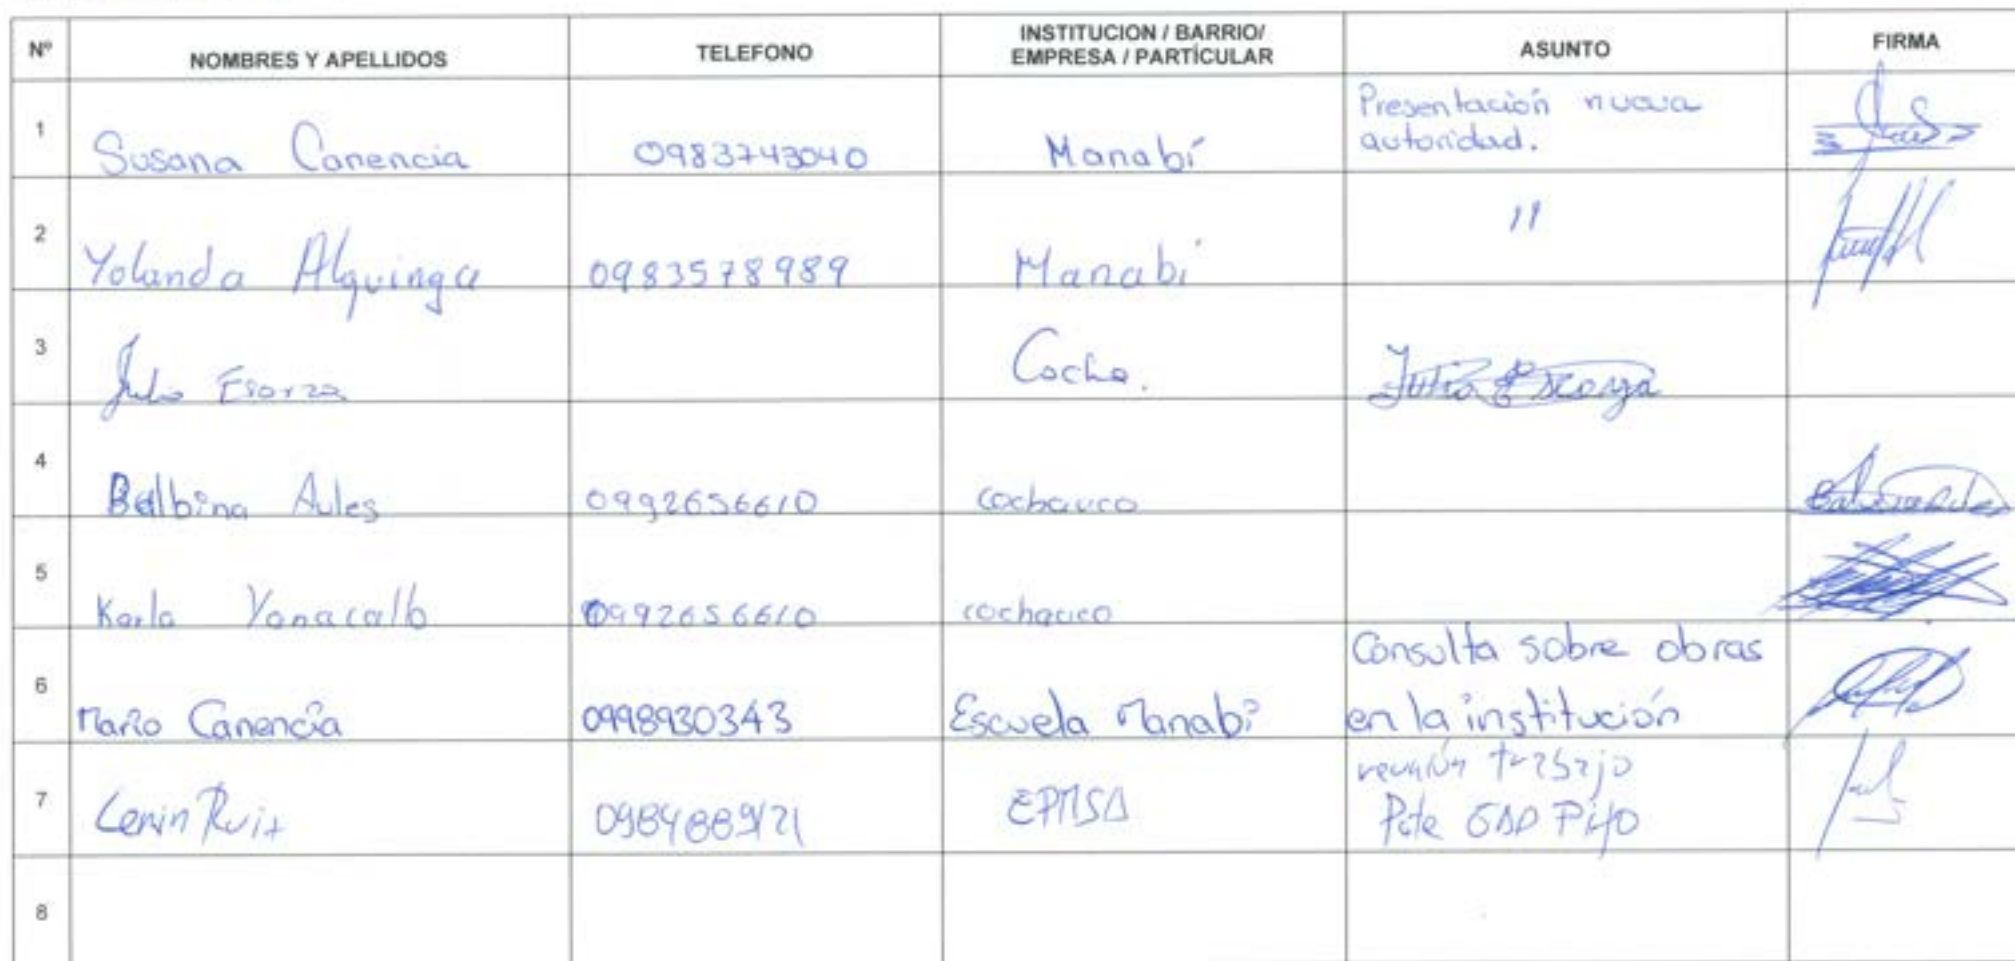 Nº NOMBRES Y APELLIDOS TELEFONO INSTITUCION / BARRIO/ EMPRESA / PARTÍCULAR ASUNTO FIRMA
1 Susana Canencia 0983743040 Manabí Presentación nueva
autoridad.
2 Yolanda Alquinga 0983578989 Manabí "
3 Julio Cocha.
4 Balbina Aules 0992656610 cochauco
5 Karla Yanacallo 0992656610 cochauco
6 Mario Canencia 0998930343 Escuela Manabí Consulta sobre obras
en la institución
7 Lenin Ruiz 0984889121 EPMSA reunión trabajo
Pdte GAD Pifo
8